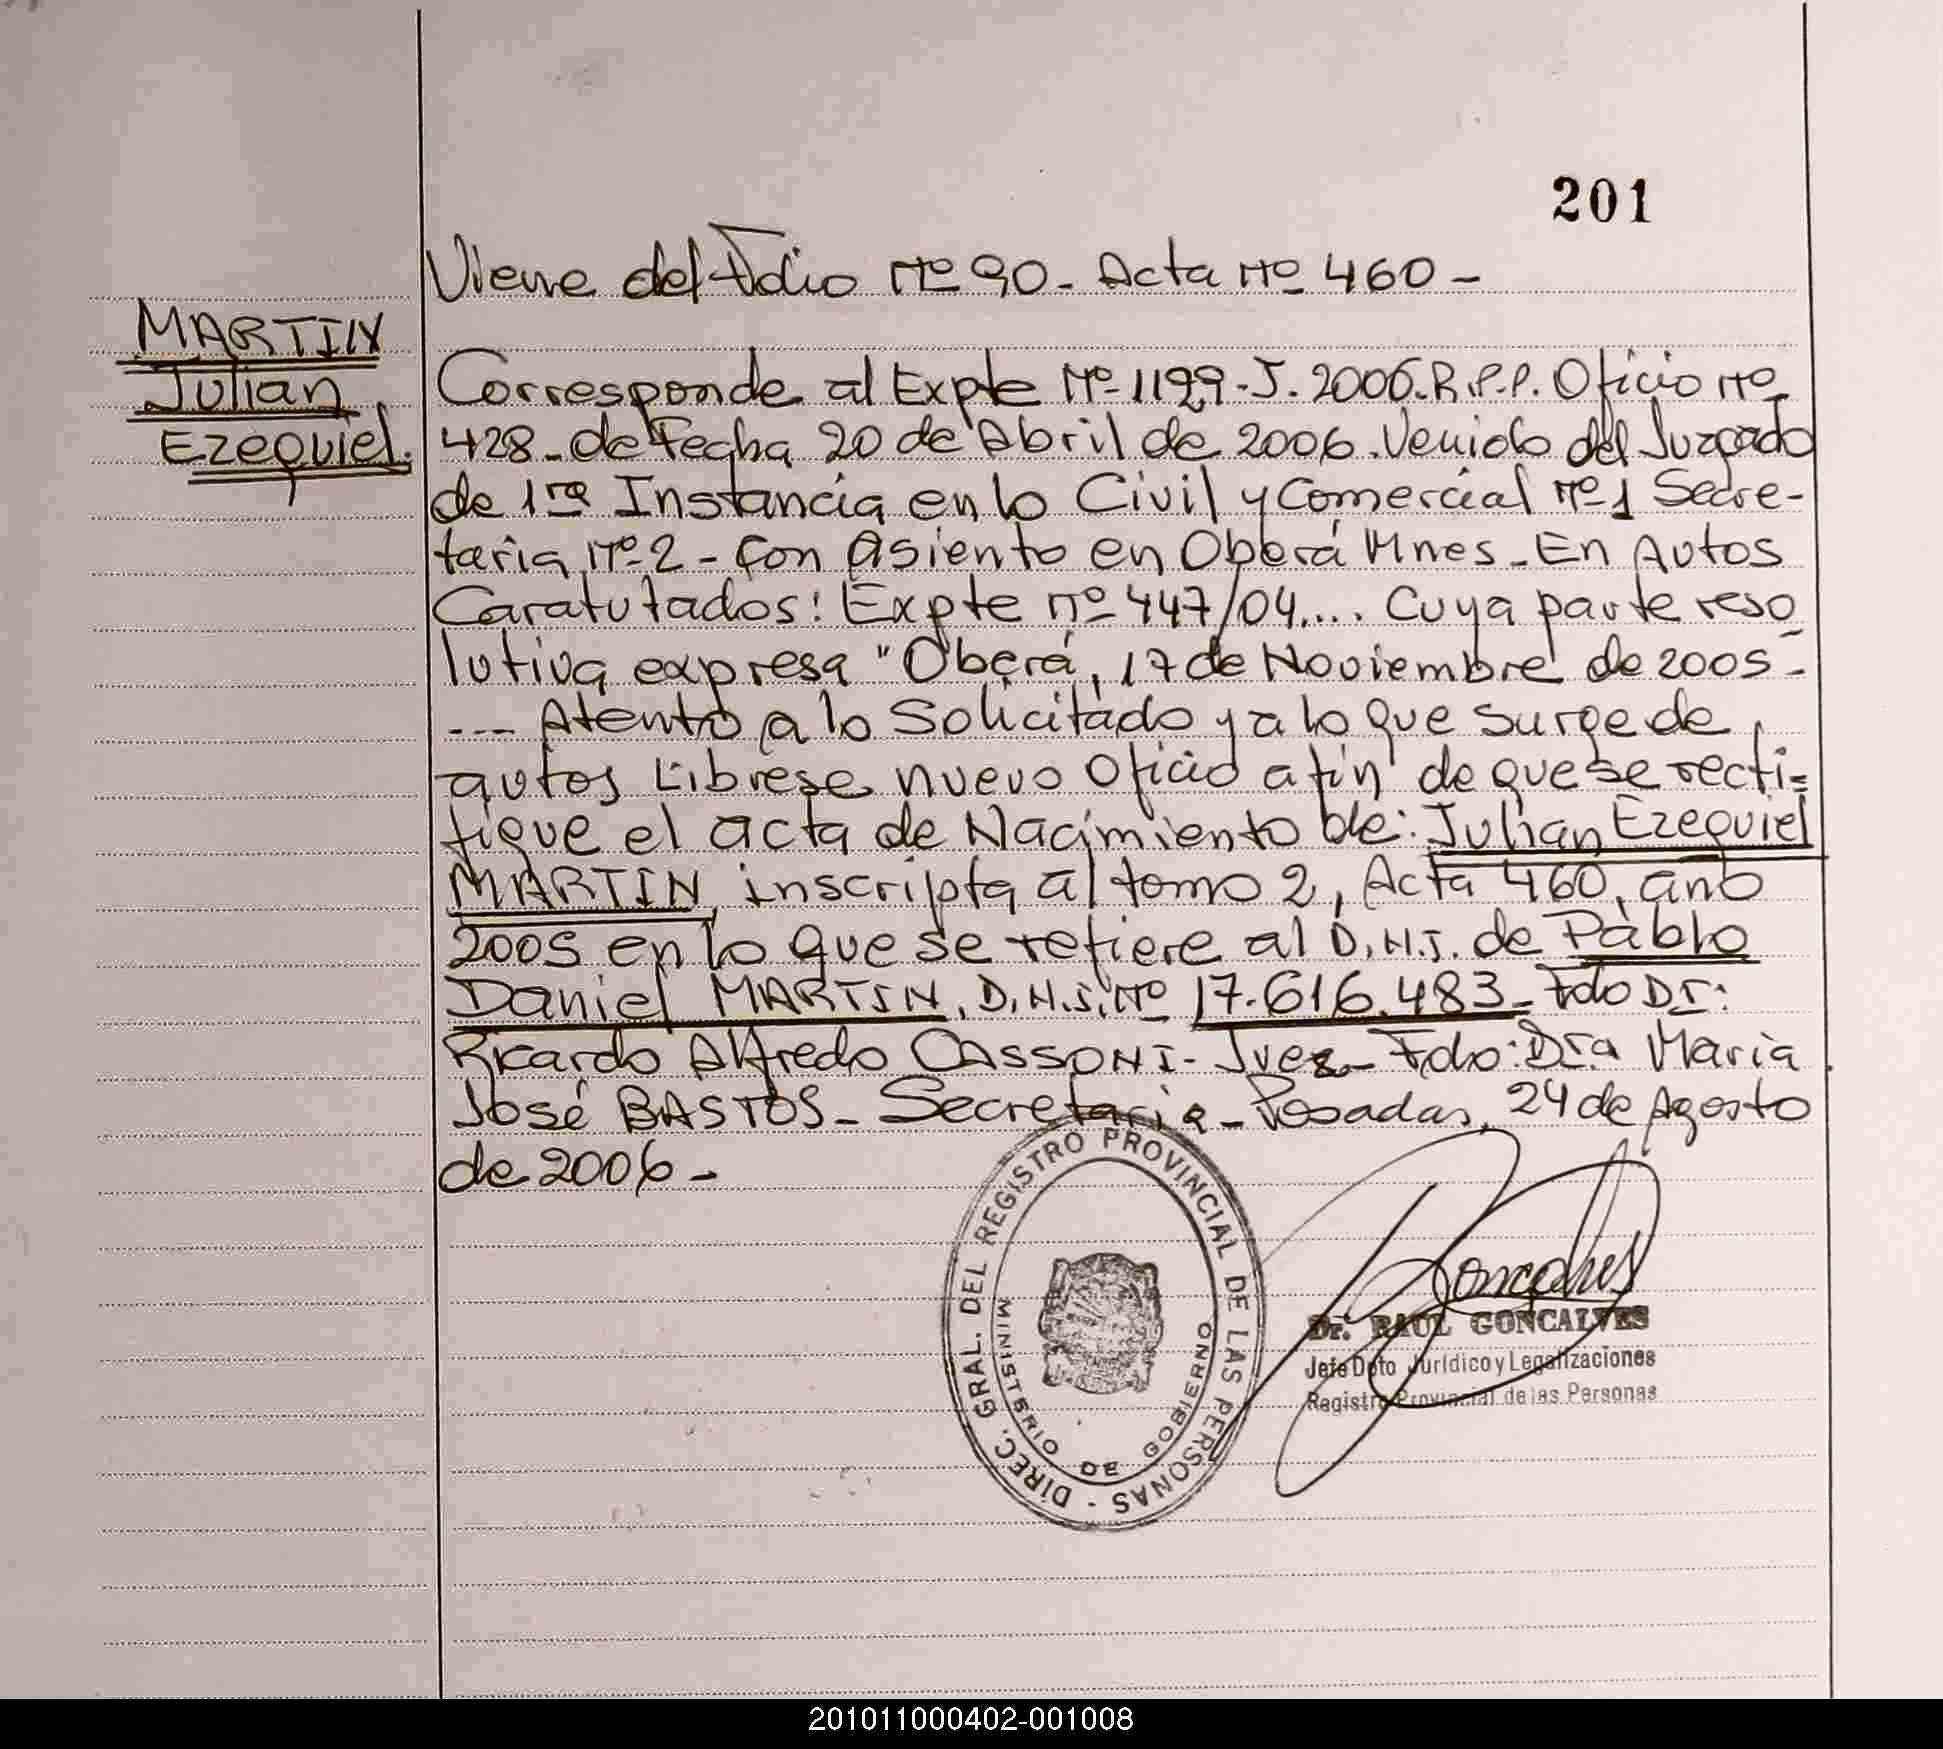 201
Viene del Folio Nº 90 - Acta Nº 460 -
MARTIN
Julian
Ezequiel.
Corresponde al Expte Nº 1129-J. 2006. R.P.P. Oficio Nº
428 - de Fecha 20 de Abril de 2006. Venido del Juzgado
de 1ra Instancia en lo Civil y Comercial Nº 1 Secre-
taria Nº 2 - Con Asiento en Oberá Mnes - En Autos
Caratutados: Expte nº 447/04.... Cuya parte reso
lutiva expresa "Oberá, 17 de Noviembre de 2005-
--- Atento a lo Solicitado y a lo que surge de
autos Librese nuevo Oficio a fin de que se recti=
fique el acta de Nacimiento de: Julian Ezequiel
MARTIN, inscripta al tomo 2, Acta 460, año
2005 en lo que se refiere al D.N.I. de Pablo
Daniel MARTIN, D.N.I. Nº 17.616.483 - Fdo Dr:
Ricardo Alfredo CASSONI - Juez - Fdo: Dra Maria
José BASTOS - Secretaria - Posadas, 24 de Agosto
de 2006 -
DIREC. GRAL. DEL REGISTRO PROVINCIAL DE LAS PERSONAS -
MINISTERIO DE GOBIERNO
Goncalves
Dr. RAUL GONCALVES
Jefe Dpto Jurídico y Legalizaciones
Registro Provincial de las Personas
201011000402-001008